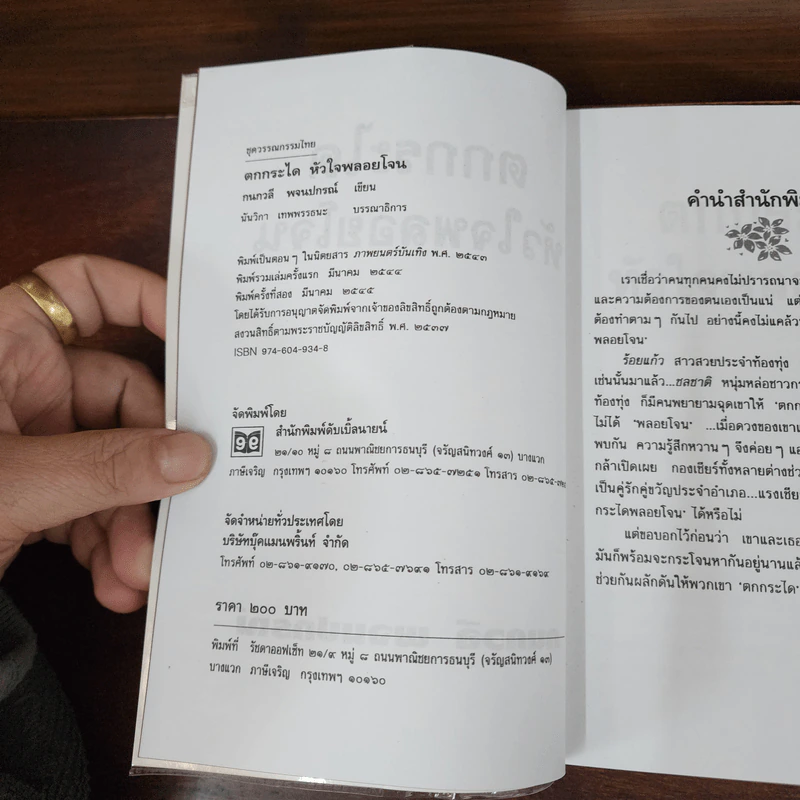 ชุดวรรณกรรมไทย
ตกกระได หัวใจพลอยโจน
กนกวลี พจนปกรณ์ เขียน
นันวิกา เทพพรรธนะ บรรณาธิการ
พิมพ์เป็นตอน ๆ ในนิตยสาร ภาพยนตร์บันเทิง พ.ศ. ๒๕๔๓
พิมพ์รวมเล่มครั้งแรก มีนาคม ๒๕๔๔
พิมพ์ครั้งที่สอง มีนาคม ๒๕๔๕
โดยได้รับการอนุญาตจัดพิมพ์จากเจ้าของลิขสิทธิ์ถูกต้องตามกฎหมาย
สงวนสิทธิ์ตามพระราชบัญญัติลิขสิทธิ์ พ.ศ. ๒๕๓๗
ISBN 974-604-934-8
จัดพิมพ์โดย
สำนักพิมพ์ดับเบิ้ลนายน์
๒๑/๑๐ หมู่ ๘ ถนนพาณิชยการธนบุรี (จรัญสนิทวงศ์ ๑๓) บางแวก
ภาษีเจริญ กรุงเทพฯ ๑๐๑๖๐ โทรศัพท์ ๐๒-๘๖๕-๗๒๕๑ โทรสาร ๐๒-๘๖๕
จัดจำหน่ายทั่วประเทศโดย
บริษัทบุ๊คแมนพริ้นท์ จำกัด
โทรศัพท์ ๐๒-๘๖๑-๙๑๗๐, ๐๒-๘๖๕-๗๖๙๑ โทรสาร ๐๒-๘๖๑-๙๑๖๙
ราคา ๒๐๐ บาท
พิมพ์ที่ รัชดาออฟเซ็ท ๒๑/๙ หมู่ ๘ ถนนพาณิชยการธนบุรี (จรัญสนิทวงศ์ ๑๓)
บางแวก ภาษีเจริญ กรุงเทพฯ ๑๐๑๖๐
คำนำสำนักพิม
เราเชื่อว่าคนทุกคนคงไม่ปรารถนาจะ
และความต้องการของตนเองเป็นแน่ แต่
ต้องทำตาม ๆ กันไป อย่างนี้คงไม่แคล้ว
พลอยโจน'
ร้อยแก้ว สาวสวยประจำท้องทุ่ง
เช่นนั้นมาแล้ว...ชลชาติ หนุ่มหล่อชาวก
ท้องทุ่ง ก็มีคนพยายามฉุดเขาให้ 'ตกก
ไม่ได้ 'พลอยโจน' ...เมื่อดวงของเขา
พบกัน ความรู้สึกหวาน ๆ จึงค่อย ๆ แ
กล้าเปิดเผย กองเชียร์ทั้งหลายต่างช่ว
เป็นคู่รักคู่ขวัญประจำอำเภอ...แรงเชีย
กระไดพลอยโจน' ได้หรือไม่
แต่ขอบอกไว้ก่อนว่า เขาและเธอ
มันก็พร้อมจะกระโจนหากันอยู่นานแล้
ช่วยกันผลักดันให้พวกเขา 'ตกกระได'